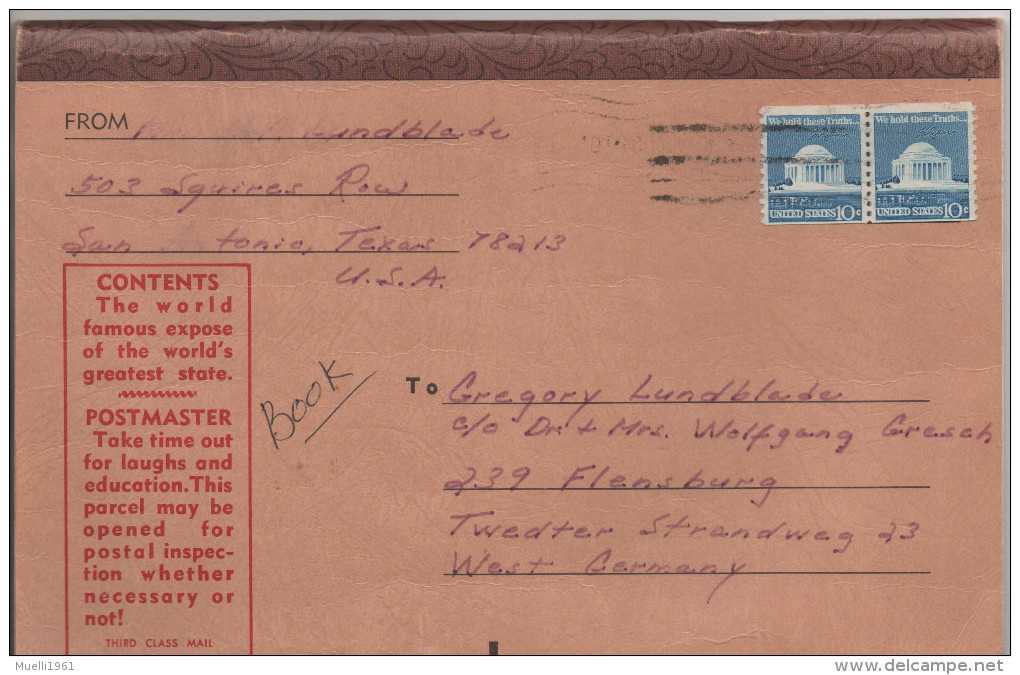 FROM Lundblade
503 Squires Row
San tonio, Texas 78213
U.S.A.
We hold these Truths...
UNITED STATES 10c
We hold these Truths...
UNITED STATES 10c
CONTENTS
The world
famous expose
of the world's
greatest state.
POSTMASTER
Take time out
for laughs and
education.This
parcel may be
opened for
postal inspec-
tion whether
necessary or
not!
THIRD CLASS MAIL
BOOK
To Gregory Lundblade
c/o Dr. + Mrs. Wolfgang Gresch
239 Flensburg
Twedter Strandweg 23
West Germany
Muelli1961
www.delcampe.net